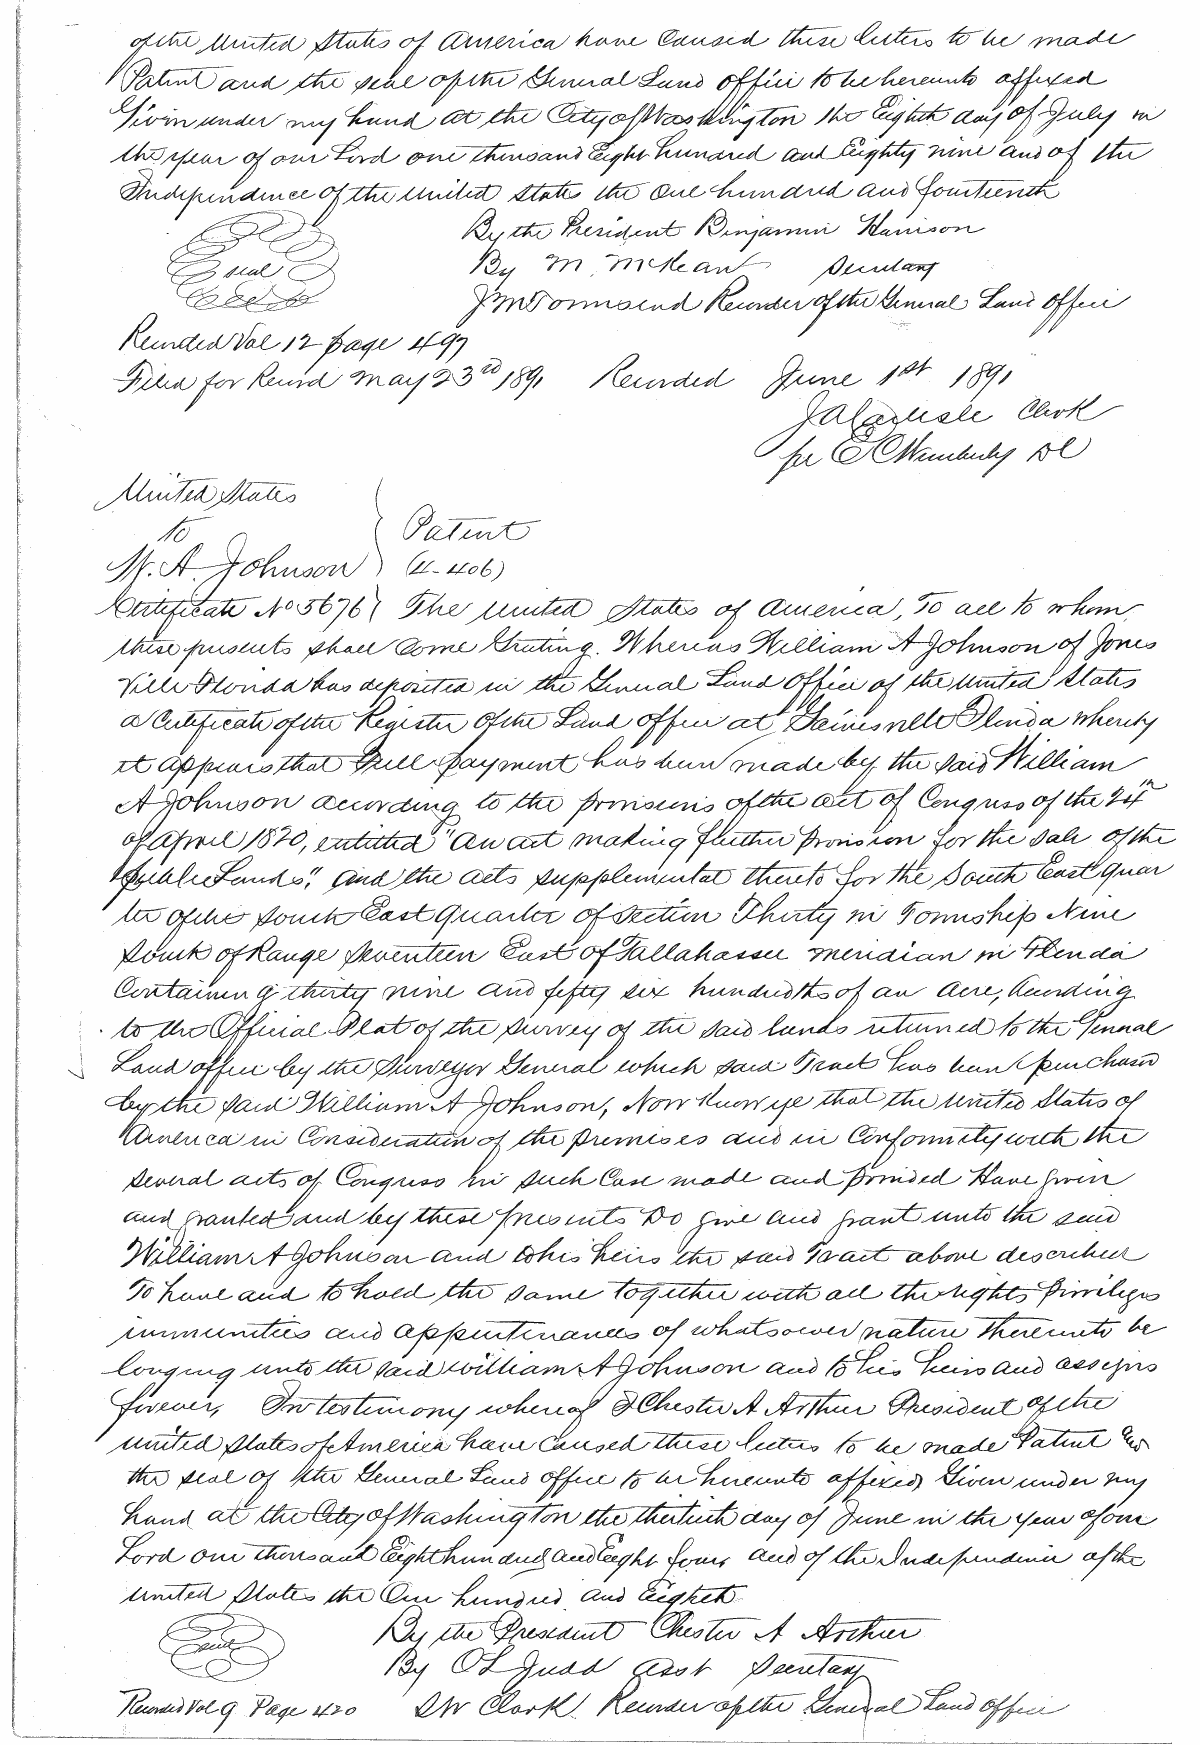 of the United States of America have caused these letters to be made
Patent and the seal of the General Land office to be hereunto affixed
Given under my hand at the City of Washington the Eighth day of July in
the year of our Lord one thousand Eight hundred and Eighty nine and of the
Independence of the United States the one hundred and fourteenth
By the President Benjamin Harrison
seal By M. McKean Secretary
J M Townsend Recorder of the General Land Office
Recorded Vol 12 page 497
Filed for Record May 23rd 1891 Recorded June 1st 1891
J A Carlisle Clerk
per DC
United States
to Patent
W. A. Johnson (4-406)
Certificate No 5676 The United States of America, To all to whom
these presents shall come Greeting. Whereas William A Johnson of Jones
ville Florida has deposited in the General Land Office of the United States
a Certificate of the Register of the Land office at Gainesville Florida whereby
it appears that full payment has been made by the said William
A Johnson according to the provisions of the act of Congress of the 24th
of April 1820, entitled "An act making further provision for the sale of the
Public Lands", and the acts supplemental thereto for the South East quar
ter of the South East Quarter of Section Thirty in Township Nine
South of Range Seventeen East of Tallahassee meridian in Florida
Containing thirty nine and fifty six hundredths of an acre, According
to the Official Plat of the survey of the said lands returned to the General
Land office by the Surveyor General which said Tract has been purchased
by the said William A Johnson, Now Know ye that the United States of
America in Consideration of the premises and in Conformity with the
several acts of Congress in such Case made and provided Have given
and granted and by these presents Do give and grant unto the said
William A Johnson and to his heirs the said Tract above described
To have and to hold the same together with all the rights privileges
immunities and appurtenances of whatsoever nature thereunto be
longing unto the said William A Johnson and to his heirs and assigns
forever, In testimony whereof I Chester A Arthur President of the
United States of America have caused these letters to be made Patent and
the seal of the General Land office to be hereunto affixed Given under my
hand at the City of Washington the thirtieth day of June in the year of our
Lord one thousand Eight hundred and Eight four and of the Independence of the
United States the One hundred and Eighth
By the President Chester A Arthur
seal By O L Judd asst Secretary
Recorded Vol 9 Page 420 S W Clark Recorder of the General Land Office